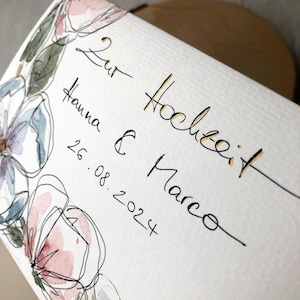 Zur Hochzeit
Hanna & Marco
26.08.2024